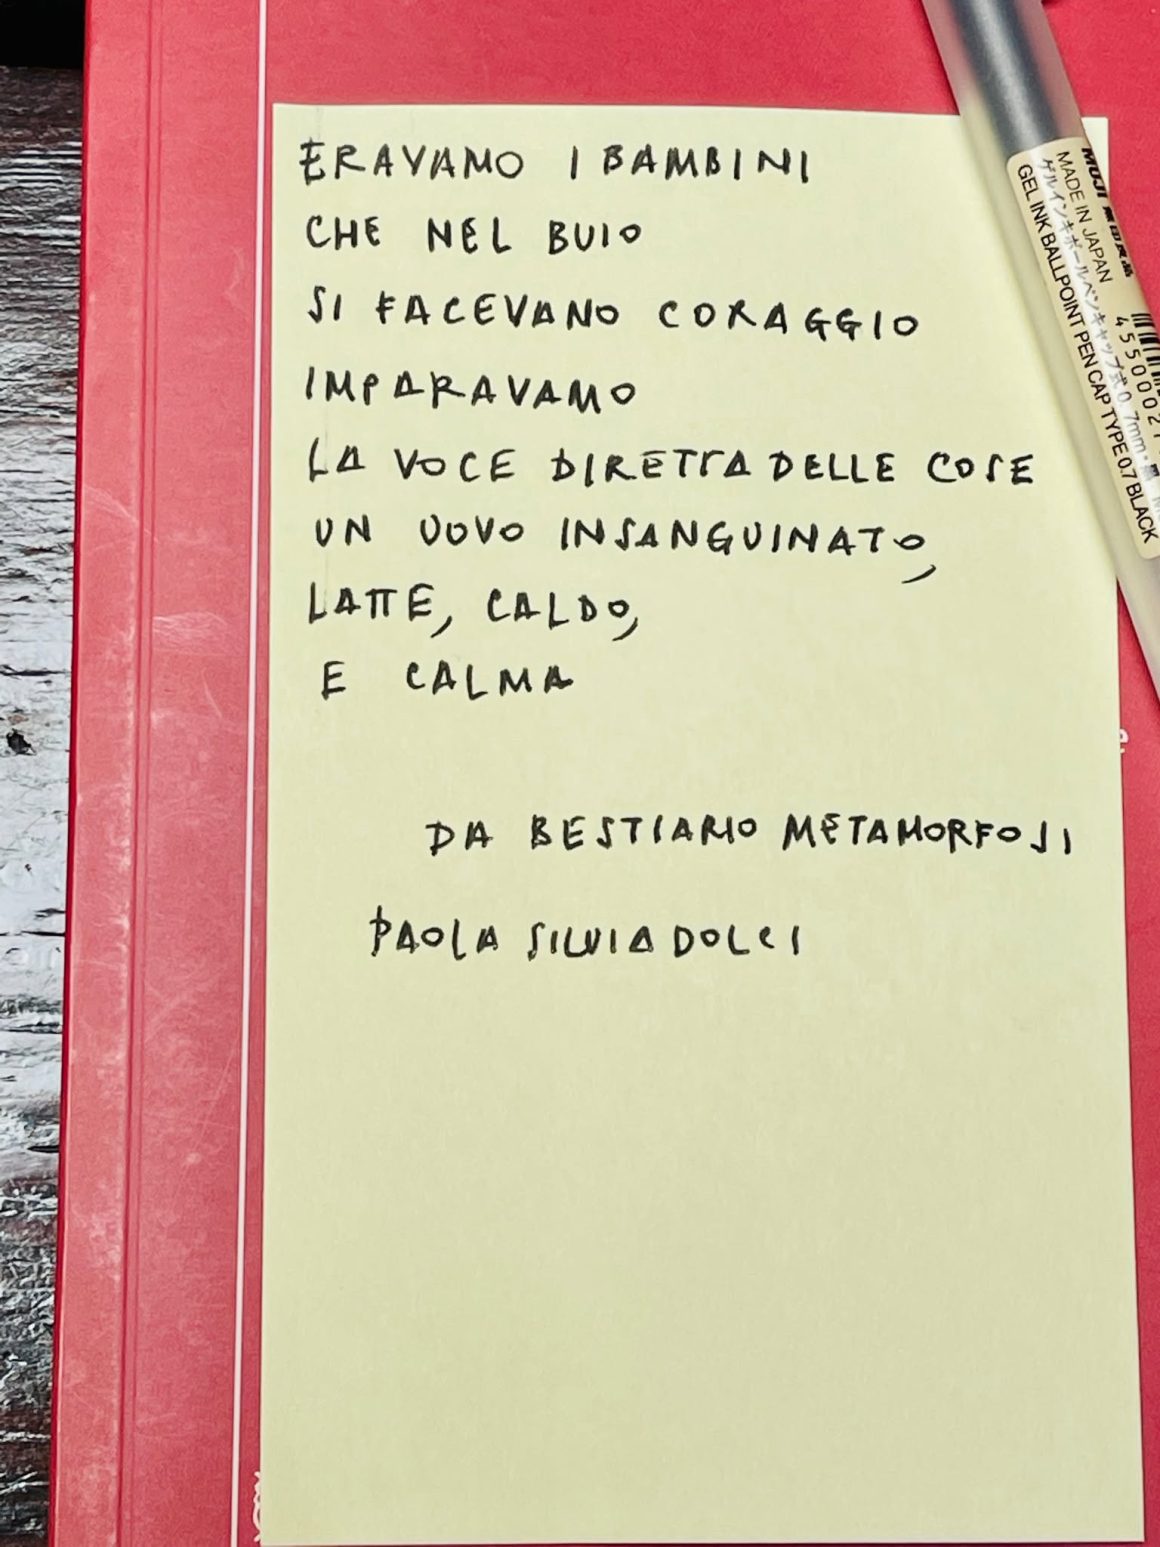 ERAVAMO I BAMBINI
CHE NEL BUIO
SI FACEVANO CORAGGIO
IMPARAVAMO
LA VOCE DIRETTA DELLE COSE
UN UOVO INSANGUINATO,
LATTE, CALDO,
E CALMA
DA BESTIARIO METAMORFOSI
PAOLA SILVIA DOLCI
MUJI 無印良品
MADE IN JAPAN
ゲルインキボールペンキャップ式0.7mm・黒
GEL INK BALLPOINT PEN CAP TYPE 0.7 BLACK